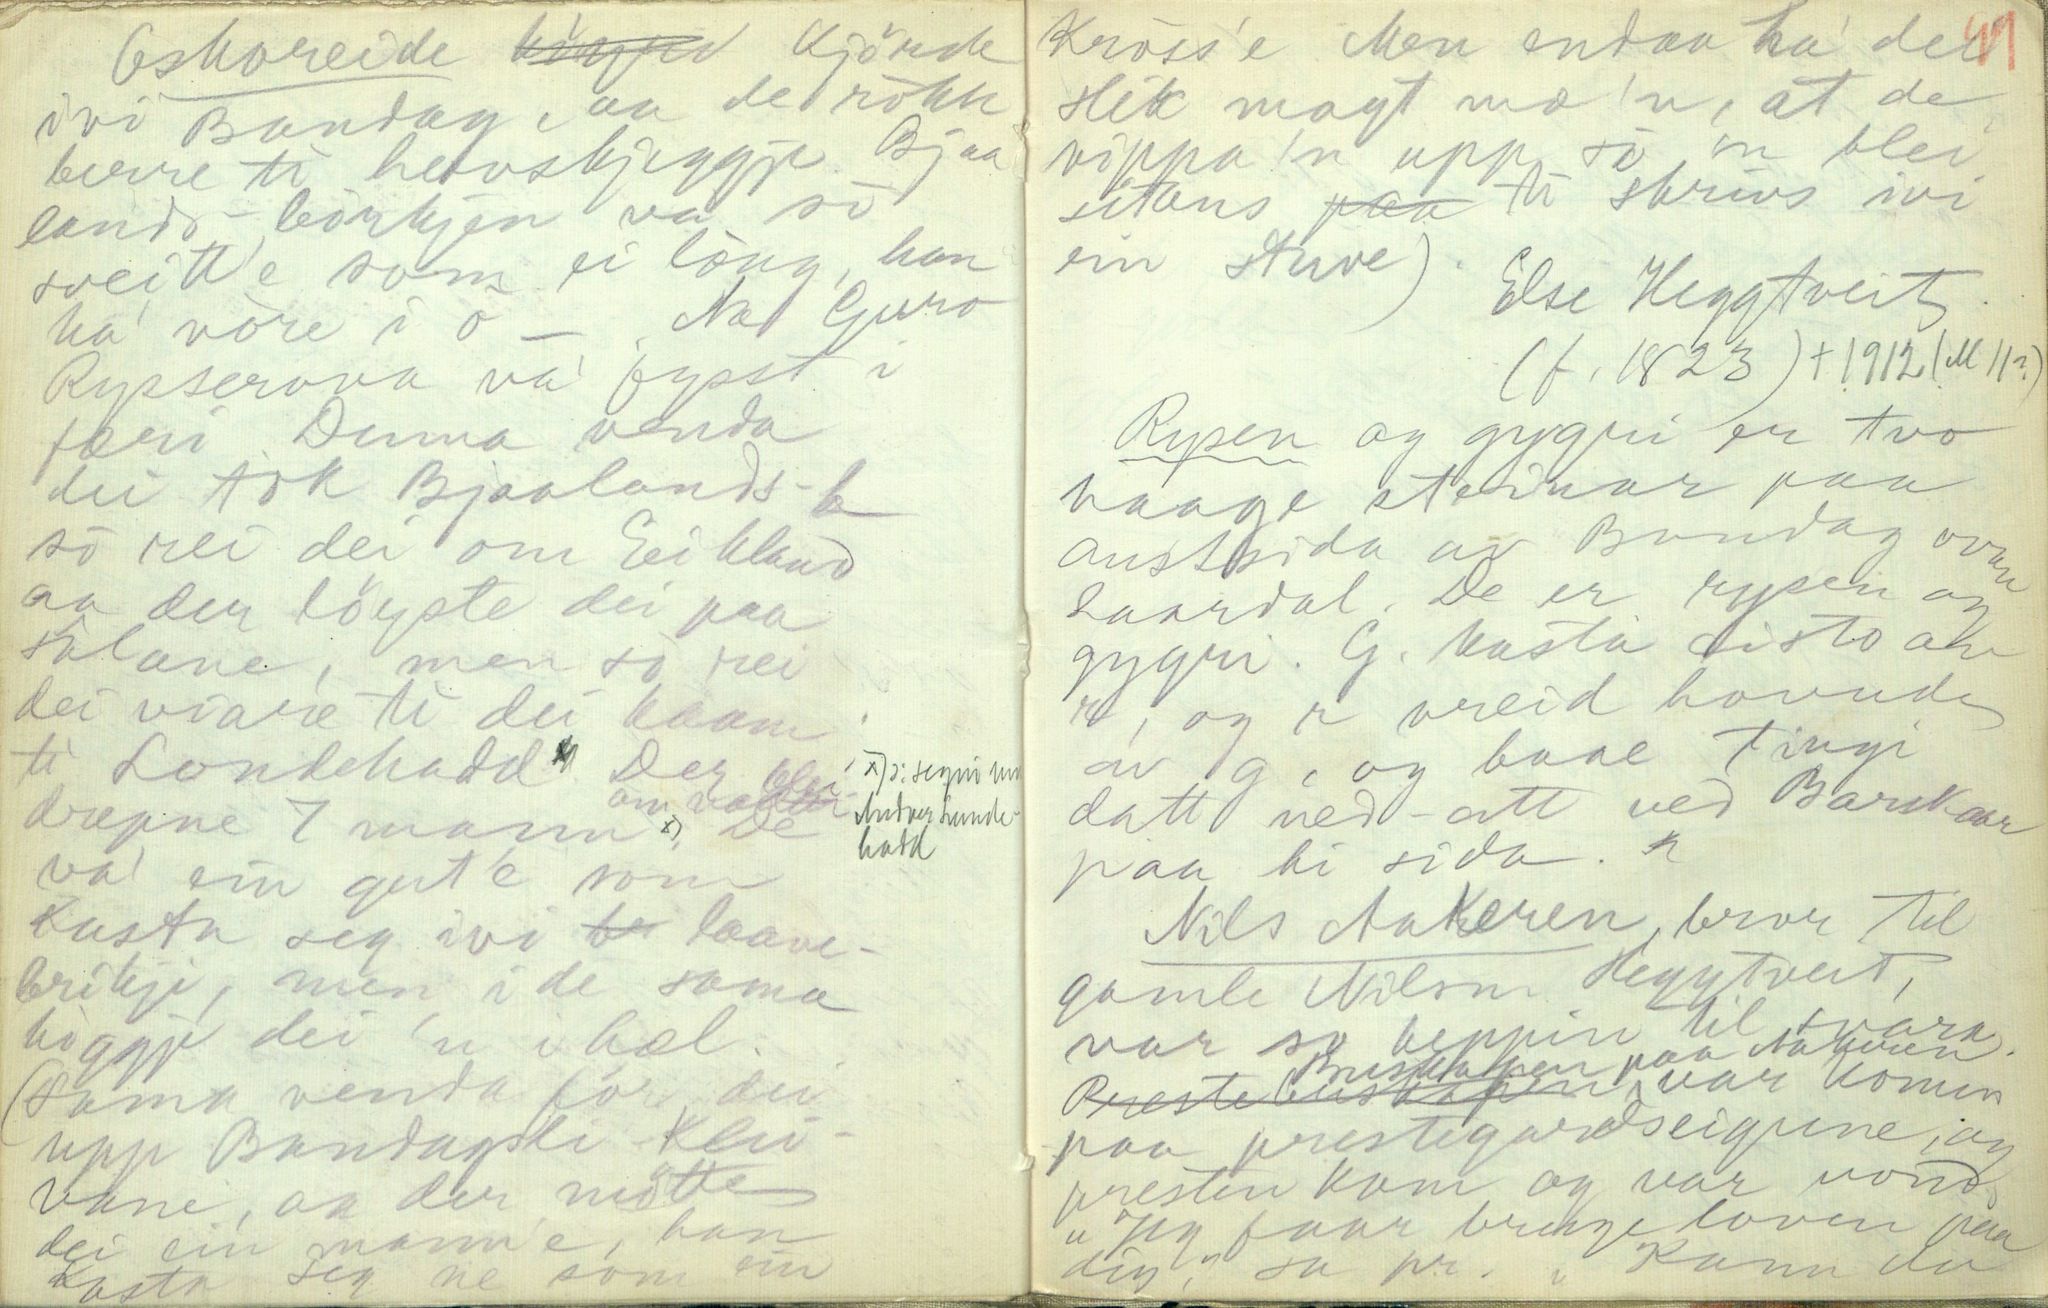 Oskoreide kjörde
ivi Bandag, aa de rökk
berre ti helvskjeggje. Bjaa
lands-börkjen va so
sveitt'e som ei laug, han
ha' vore i o — . Na Guro
Rysserova va' fysst i
færi Denna venda
dei tok Bjaalands-b
so rei dei om Eikland
aa der löyste dei paa
salane, men so rei
dei viare ti dei kaam
ti Londehadd Der blei
drepne 7 mann x). De
va' ein gut'e som
kasta seg ivi laave-
brikji, men i de sama
höggje dei 'n i hel.
(Sama venda for dei
upp Bandagsli-Klei-
vane, aa der mötte
dei ein mann'e, han
kasta seg ne som ein
x) ɔ: segni um
Aadver Lunde-
hadd
41
Kross'e Men endaa ha' der
slik magt mæ 'n, at de
vippa 'n upp, so 'n blei
sitans paa ti skrivs ivi
ein stuve).
Else Heggtveit
(f. 1823) + 1912 (M 112)
Rysen og gygri er tvo
haage steinar paa
austsida av Bandag ovan
Laardal. De er rysen og
gygri. G. kasta sisto aat
r, og r vreid hovude
av g, og baae tingi
datt ned-att ved Barskaar
paa hi sida.
Nils Aakeren, bror til
gamle Nilson Heggtveit,
var so heppin til svara.
Buskapen paa Aakeren
Prestebuskapen var komin
paa prestegardseigune, og
presten kom og var vond.
"Jeg faar bringe loven paa
dig," sa pr. "Kann du